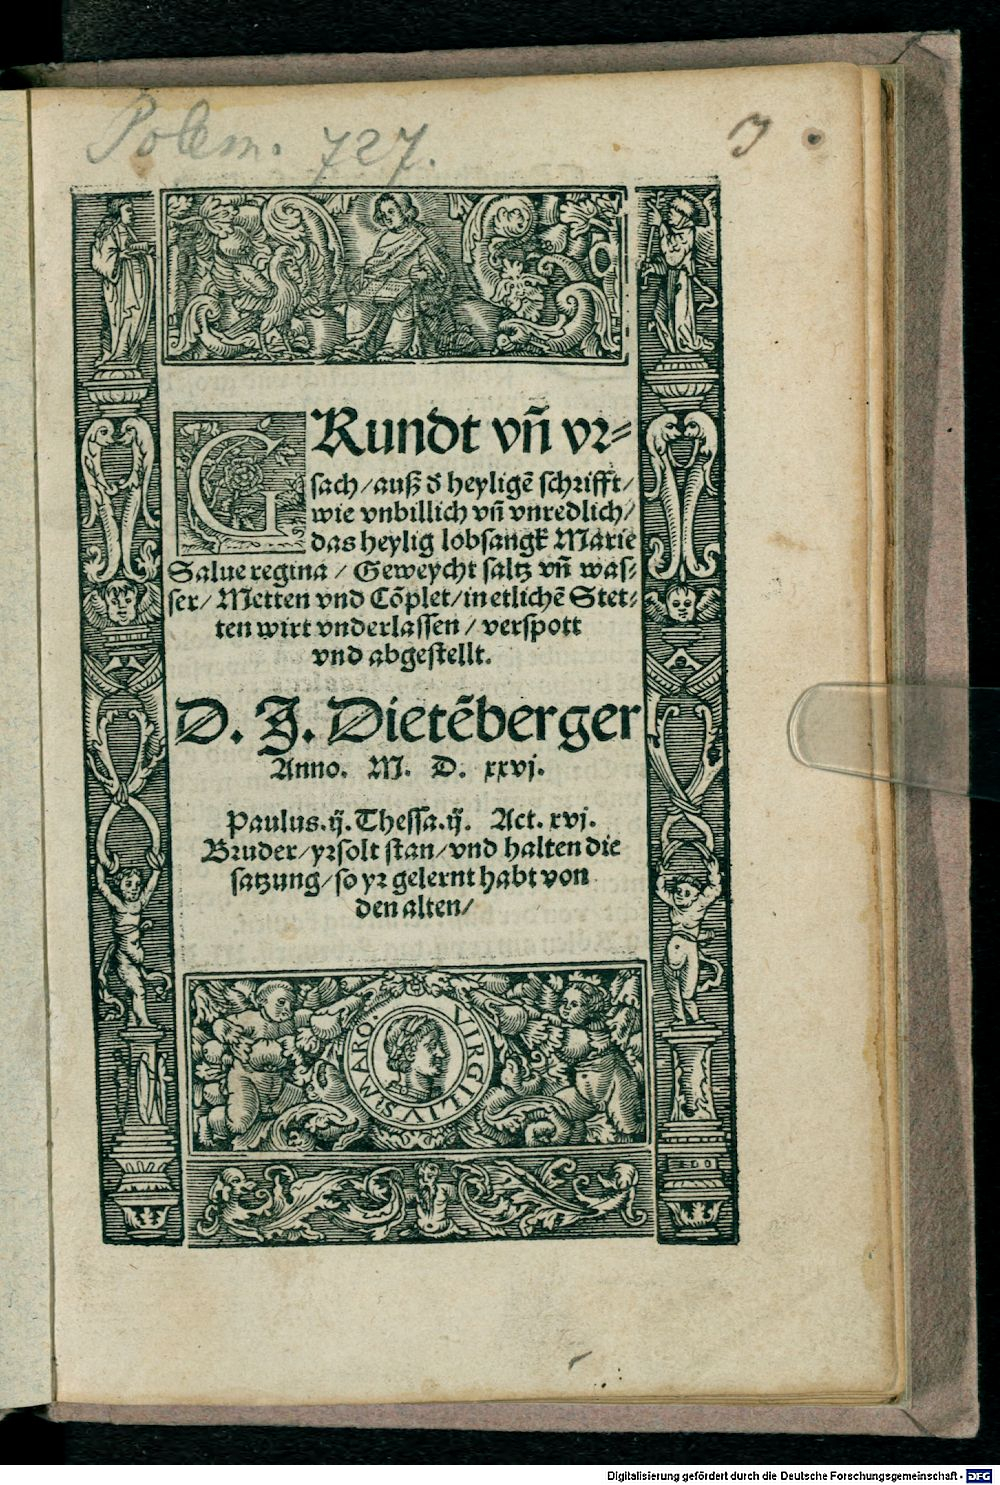 Polem. 727.
GRundt vñ vr⸗
sach/auß d̕ heyligẽ schrifft/
wie vnbillich vñ vnredlich/
das heylig lobsangk Marie
Salue regina / Geweycht saltz vñ was⸗
ser/ Metten vnd Cõplet/in etlichẽ Stet⸗
ten wirt vnderlassen / verspott
vnd abgestellt.
D. J. Dietẽberger
Anno. M. D. xxvj.
Paulus.ij. Thessa.ij. Act. xvj.
Bruder/yr solt stan/vnd halten die
satzung/so yr gelernt habt von
den alten/
VIRGILIVS MARO
Digitalisierung gefördert durch die Deutsche Forschungsgemeinschaft - DFG